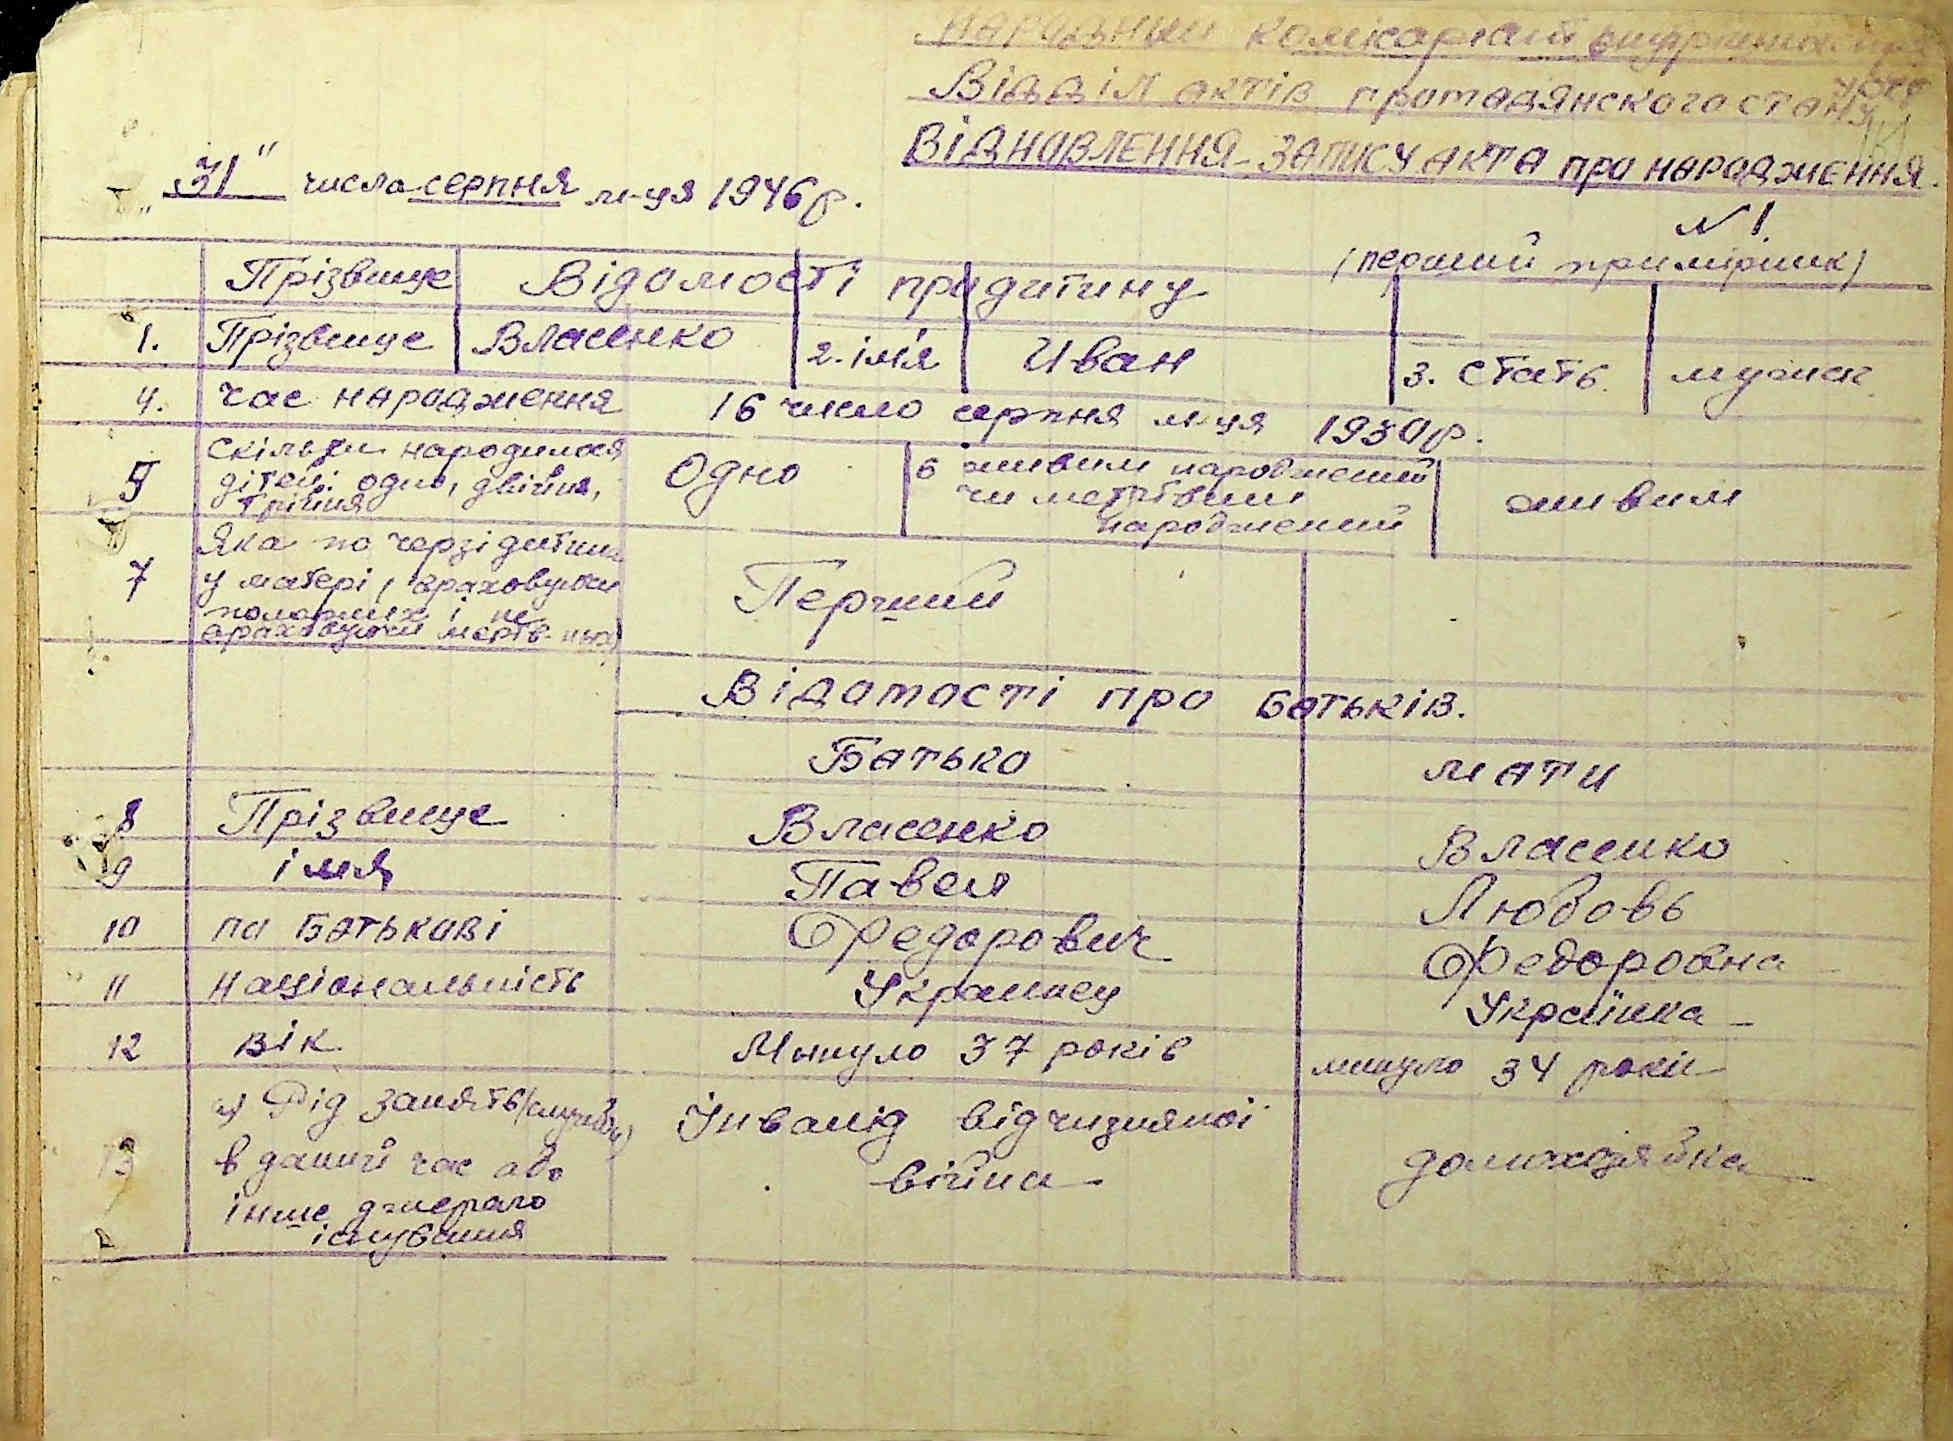 Народний комісаріат внутрішніх справ
УРСР
Відділ актів громадянского стану
ВіДНОВЛЕННЯ-ЗАПИСУ АКТА про народження.
"31" числа серпня м-ця 1946 р.
N 1.
(перший примірник)
Прізвище Відомості про дитину
1. Прізвище Власенко 2. ім'я Иван 3. стать мужск
4. час народження 16 число серпня м-ця 1930 р.
5 скільки народилося дітей: одно, двійня, трійня Одно 6 живим народжений чи мертвим народжений живим
7 Яка по черзі дитина у матері, враховуючи померших і не враховуючи мертв-них Перчий
Відомості про Батьків.
Батько мати
8 Прізвище Власенко Власенко
9 імя Павел Любовь
10 по Батькові Федорович Федоровна
11 національність Украинец Українка
12 вік Минуло 37 років минуло 34 роки
13 а) Рід занять (служби) в даний час або інше джерело існування Інвалід відчизняної війни домохозяйка